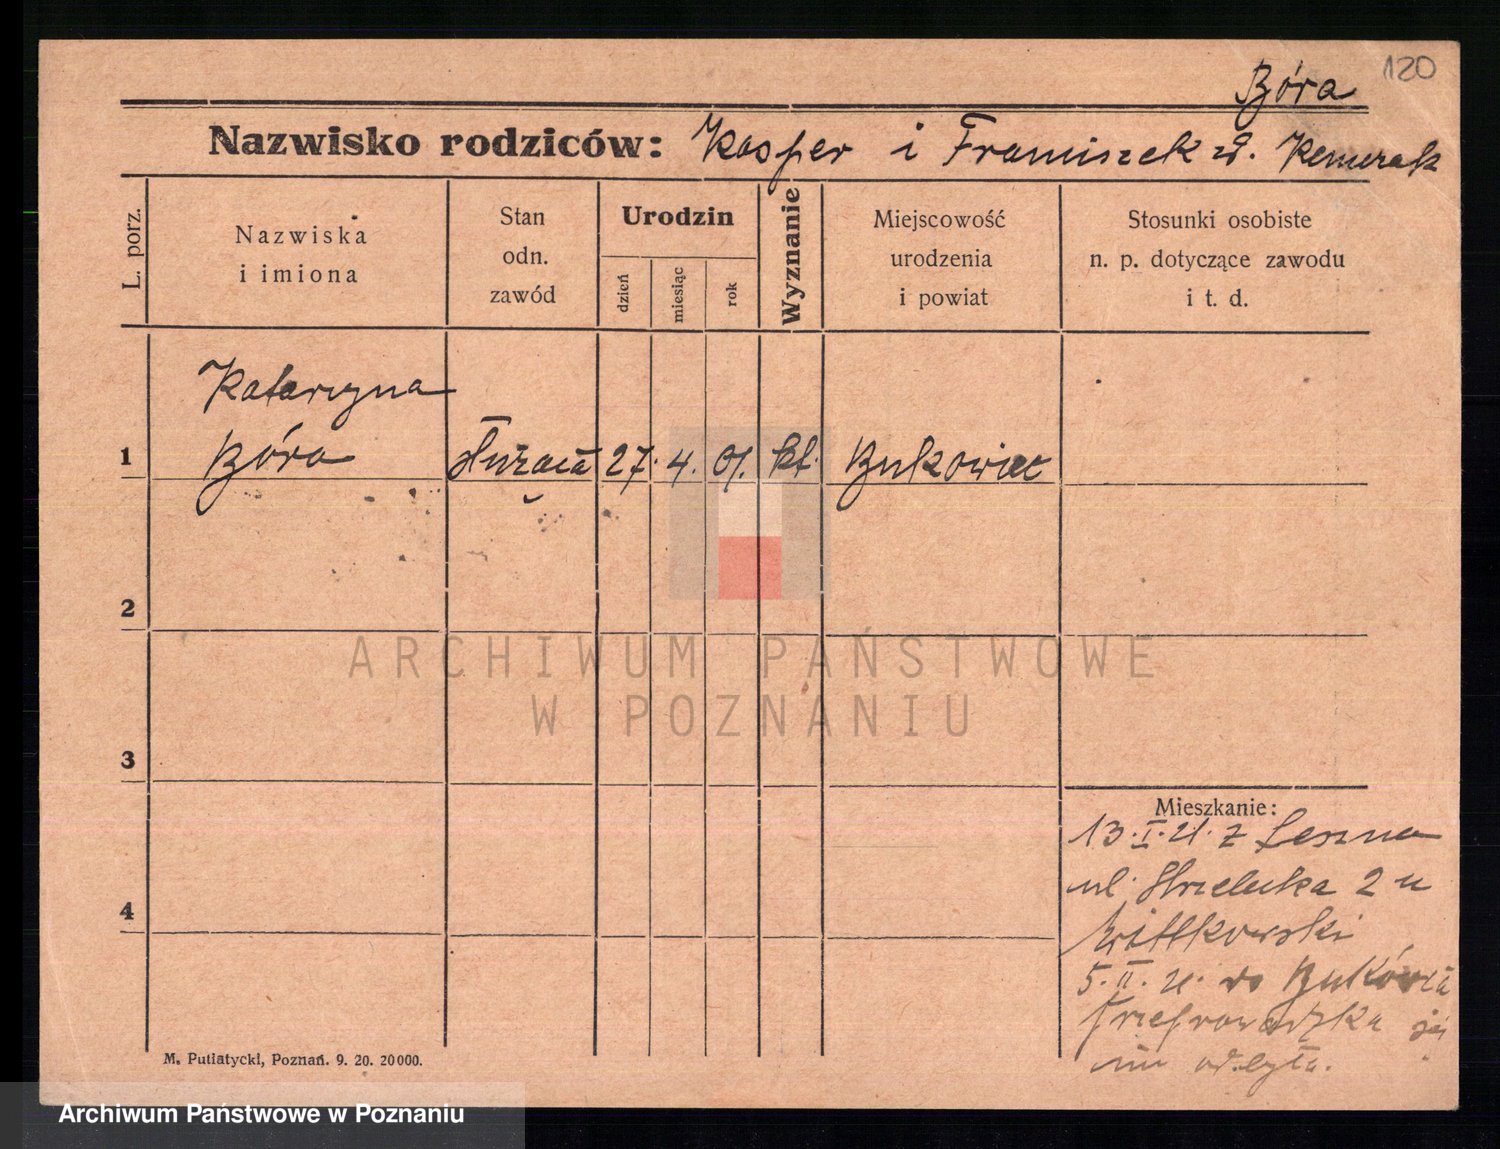 120
Bóra
Nazwisko rodziców: Kasper i Franciszek zd.
L. porz.
Nazwiska
i imiona
Stan
odn.
zawód
Urodzin
dzień
miesiąc
rok
Wyznanie
Miejscowość
urodzenia
i powiat
Stosunki osobiste
n. p. dotyczące zawodu
i t. d.
Katarzyna
1 Bóra służąca 27. 4. 01. kt. Bukowiec
2
ARCHIWUM PAŃSTWOWE
W POZNANIU
3
4
Mieszkanie:
13.I.21. z Leszna
ul. Strzelecka 2 u
Wittkowski
5.II.21. do
przeprowadzka
nie odbyła.
M. Putiatycki, Poznań. 9. 20. 20000.
Archiwum Państwowe w Poznaniu